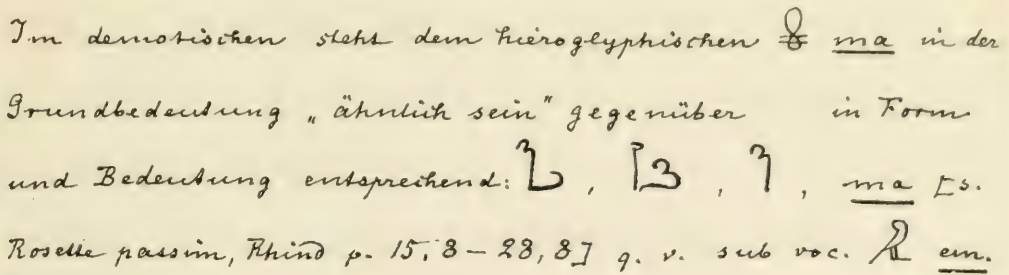 Im demotischen steht dem hieroglyphischen ma in der
Grundbedeutung „ähnlich sein" gegenüber in Form
und Bedeutung entsprechend: , , , ma [s.
Rosette passim, Rhind p. 15,8 – 28,8] q. v. sub voc. em.